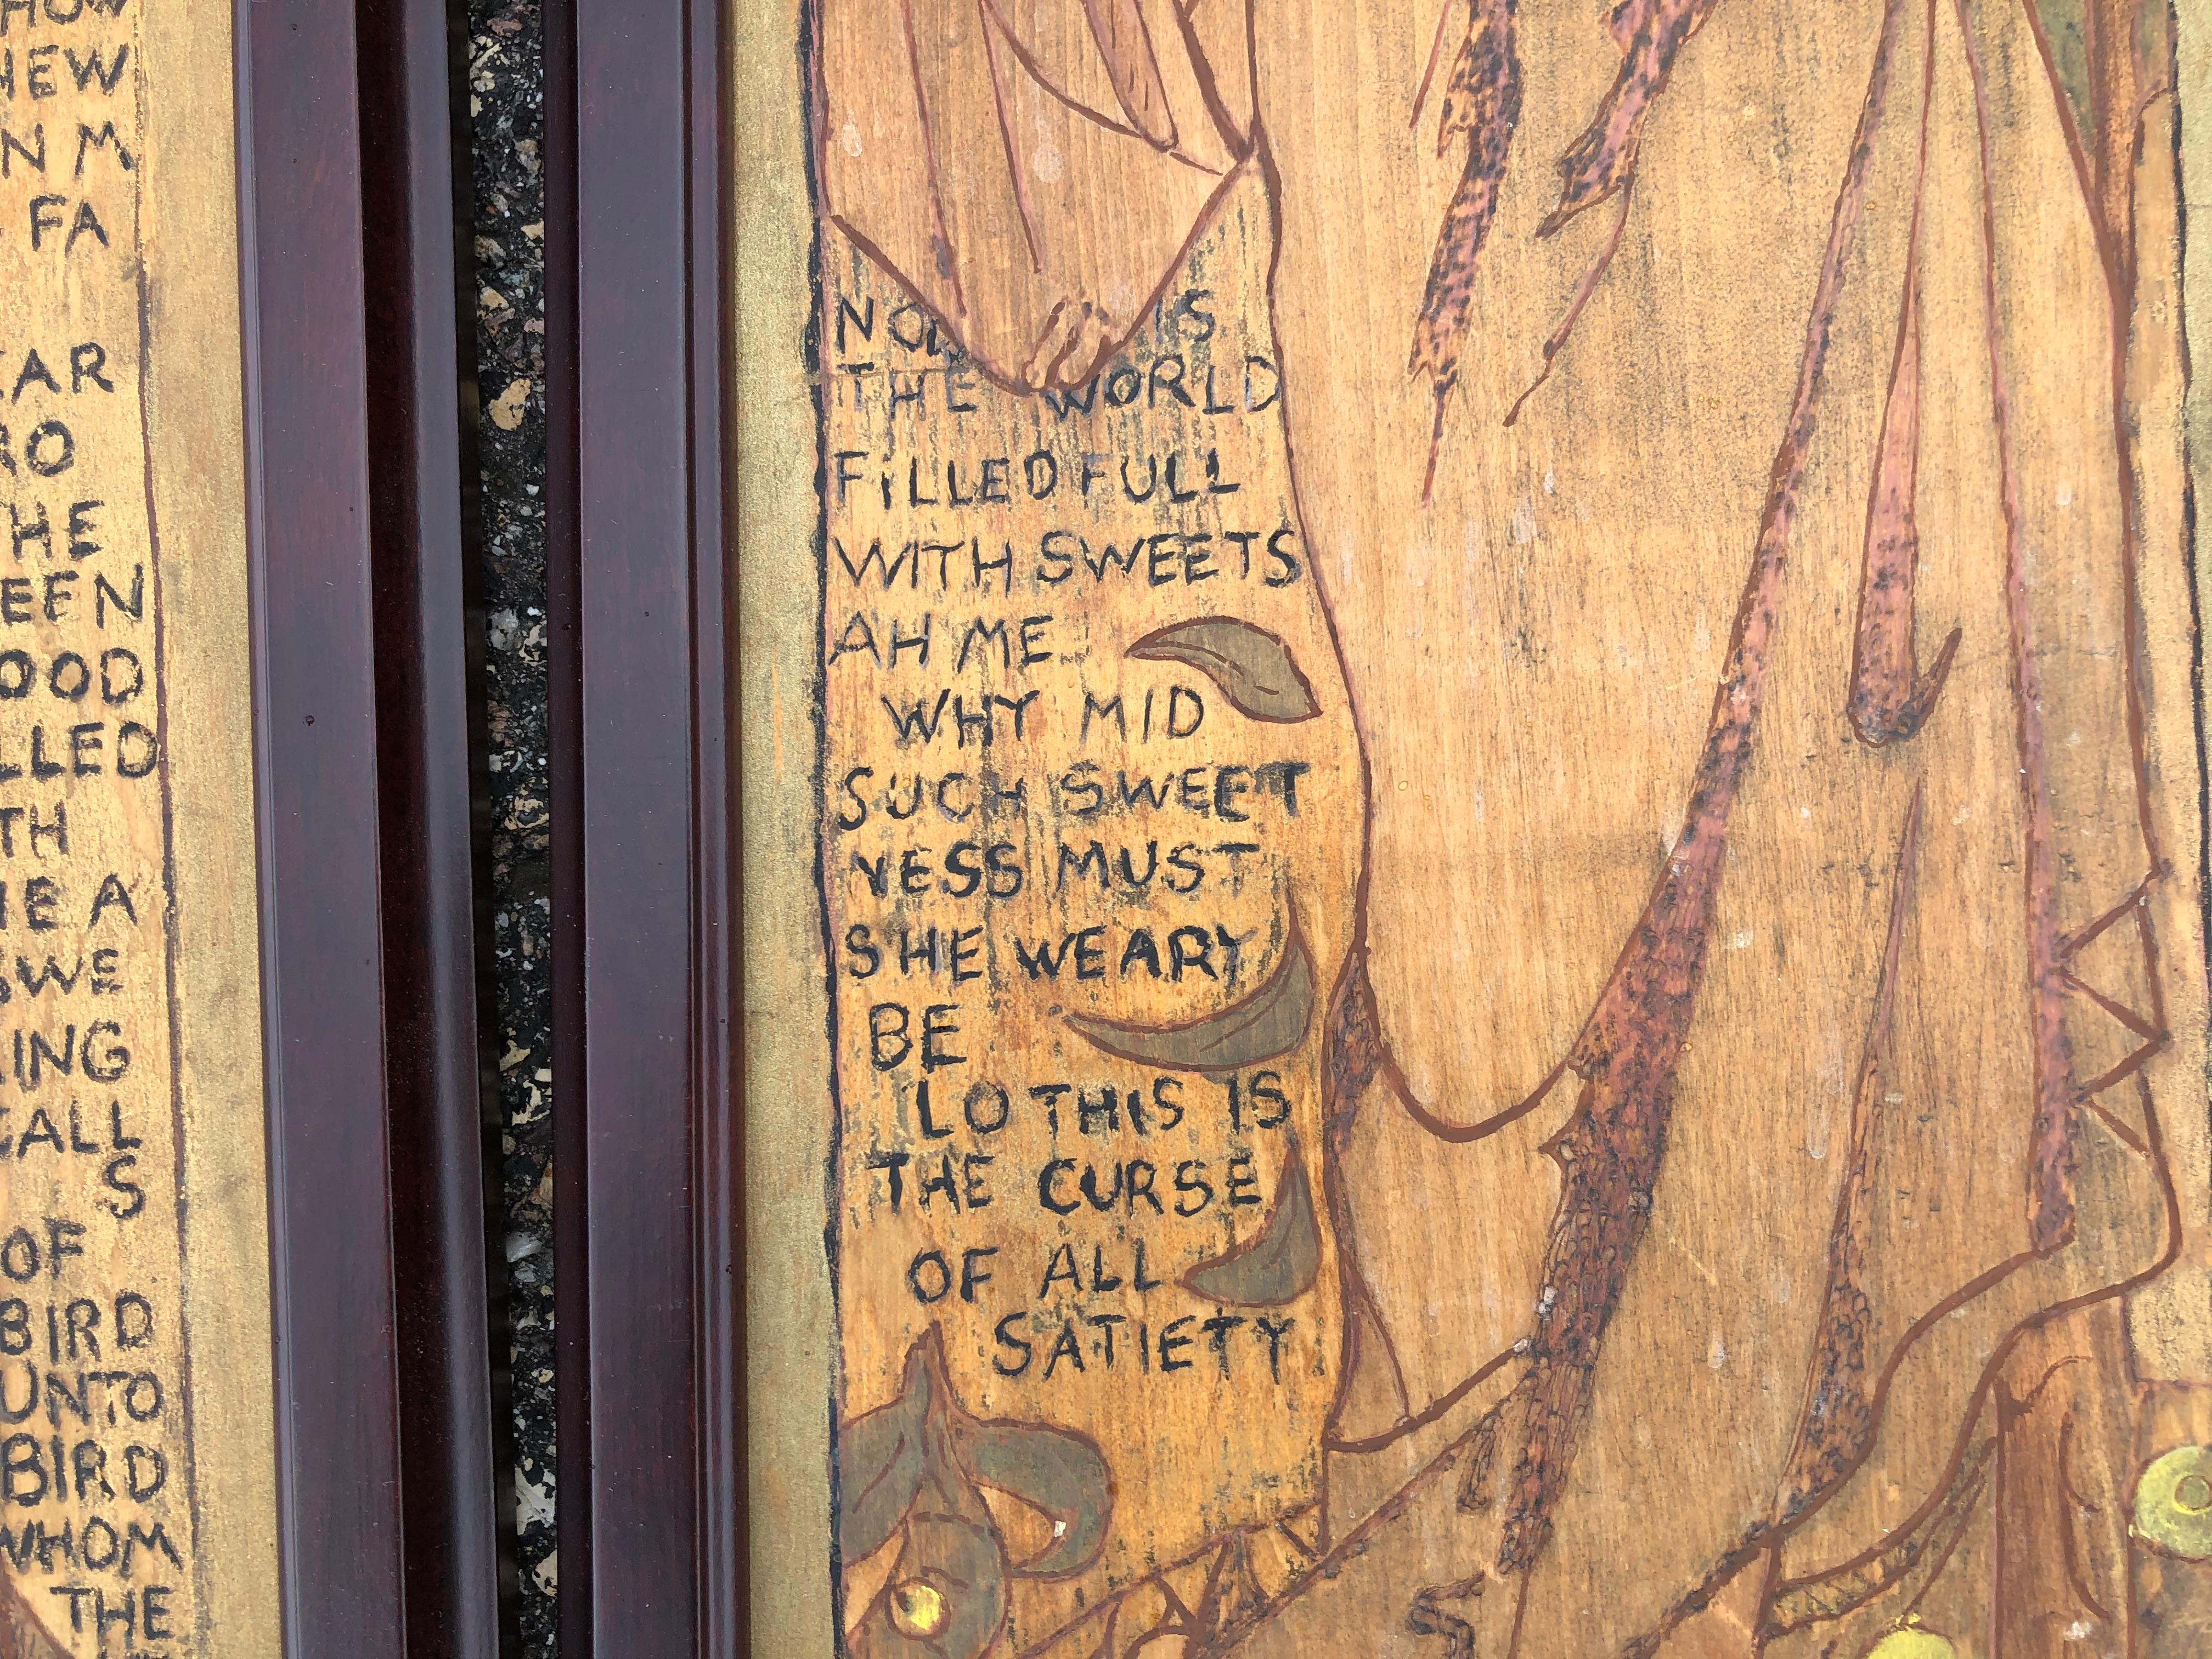 HOW
HEW
N M
FA
EAR
RO
THE
EEN
OOD
LLED
TH
IE A
SWE
ING
CALL
S
OF
BIRD
UNTO
BIRD
WHOM
THE
NOW IS
THE WORLD
FILLED FULL
WITH SWEETS
AH ME
WHY MID
SUCH SWEET
NESS MUST
SHE WEARY
BE
LO THIS IS
THE CURSE
OF ALL
SATIETY